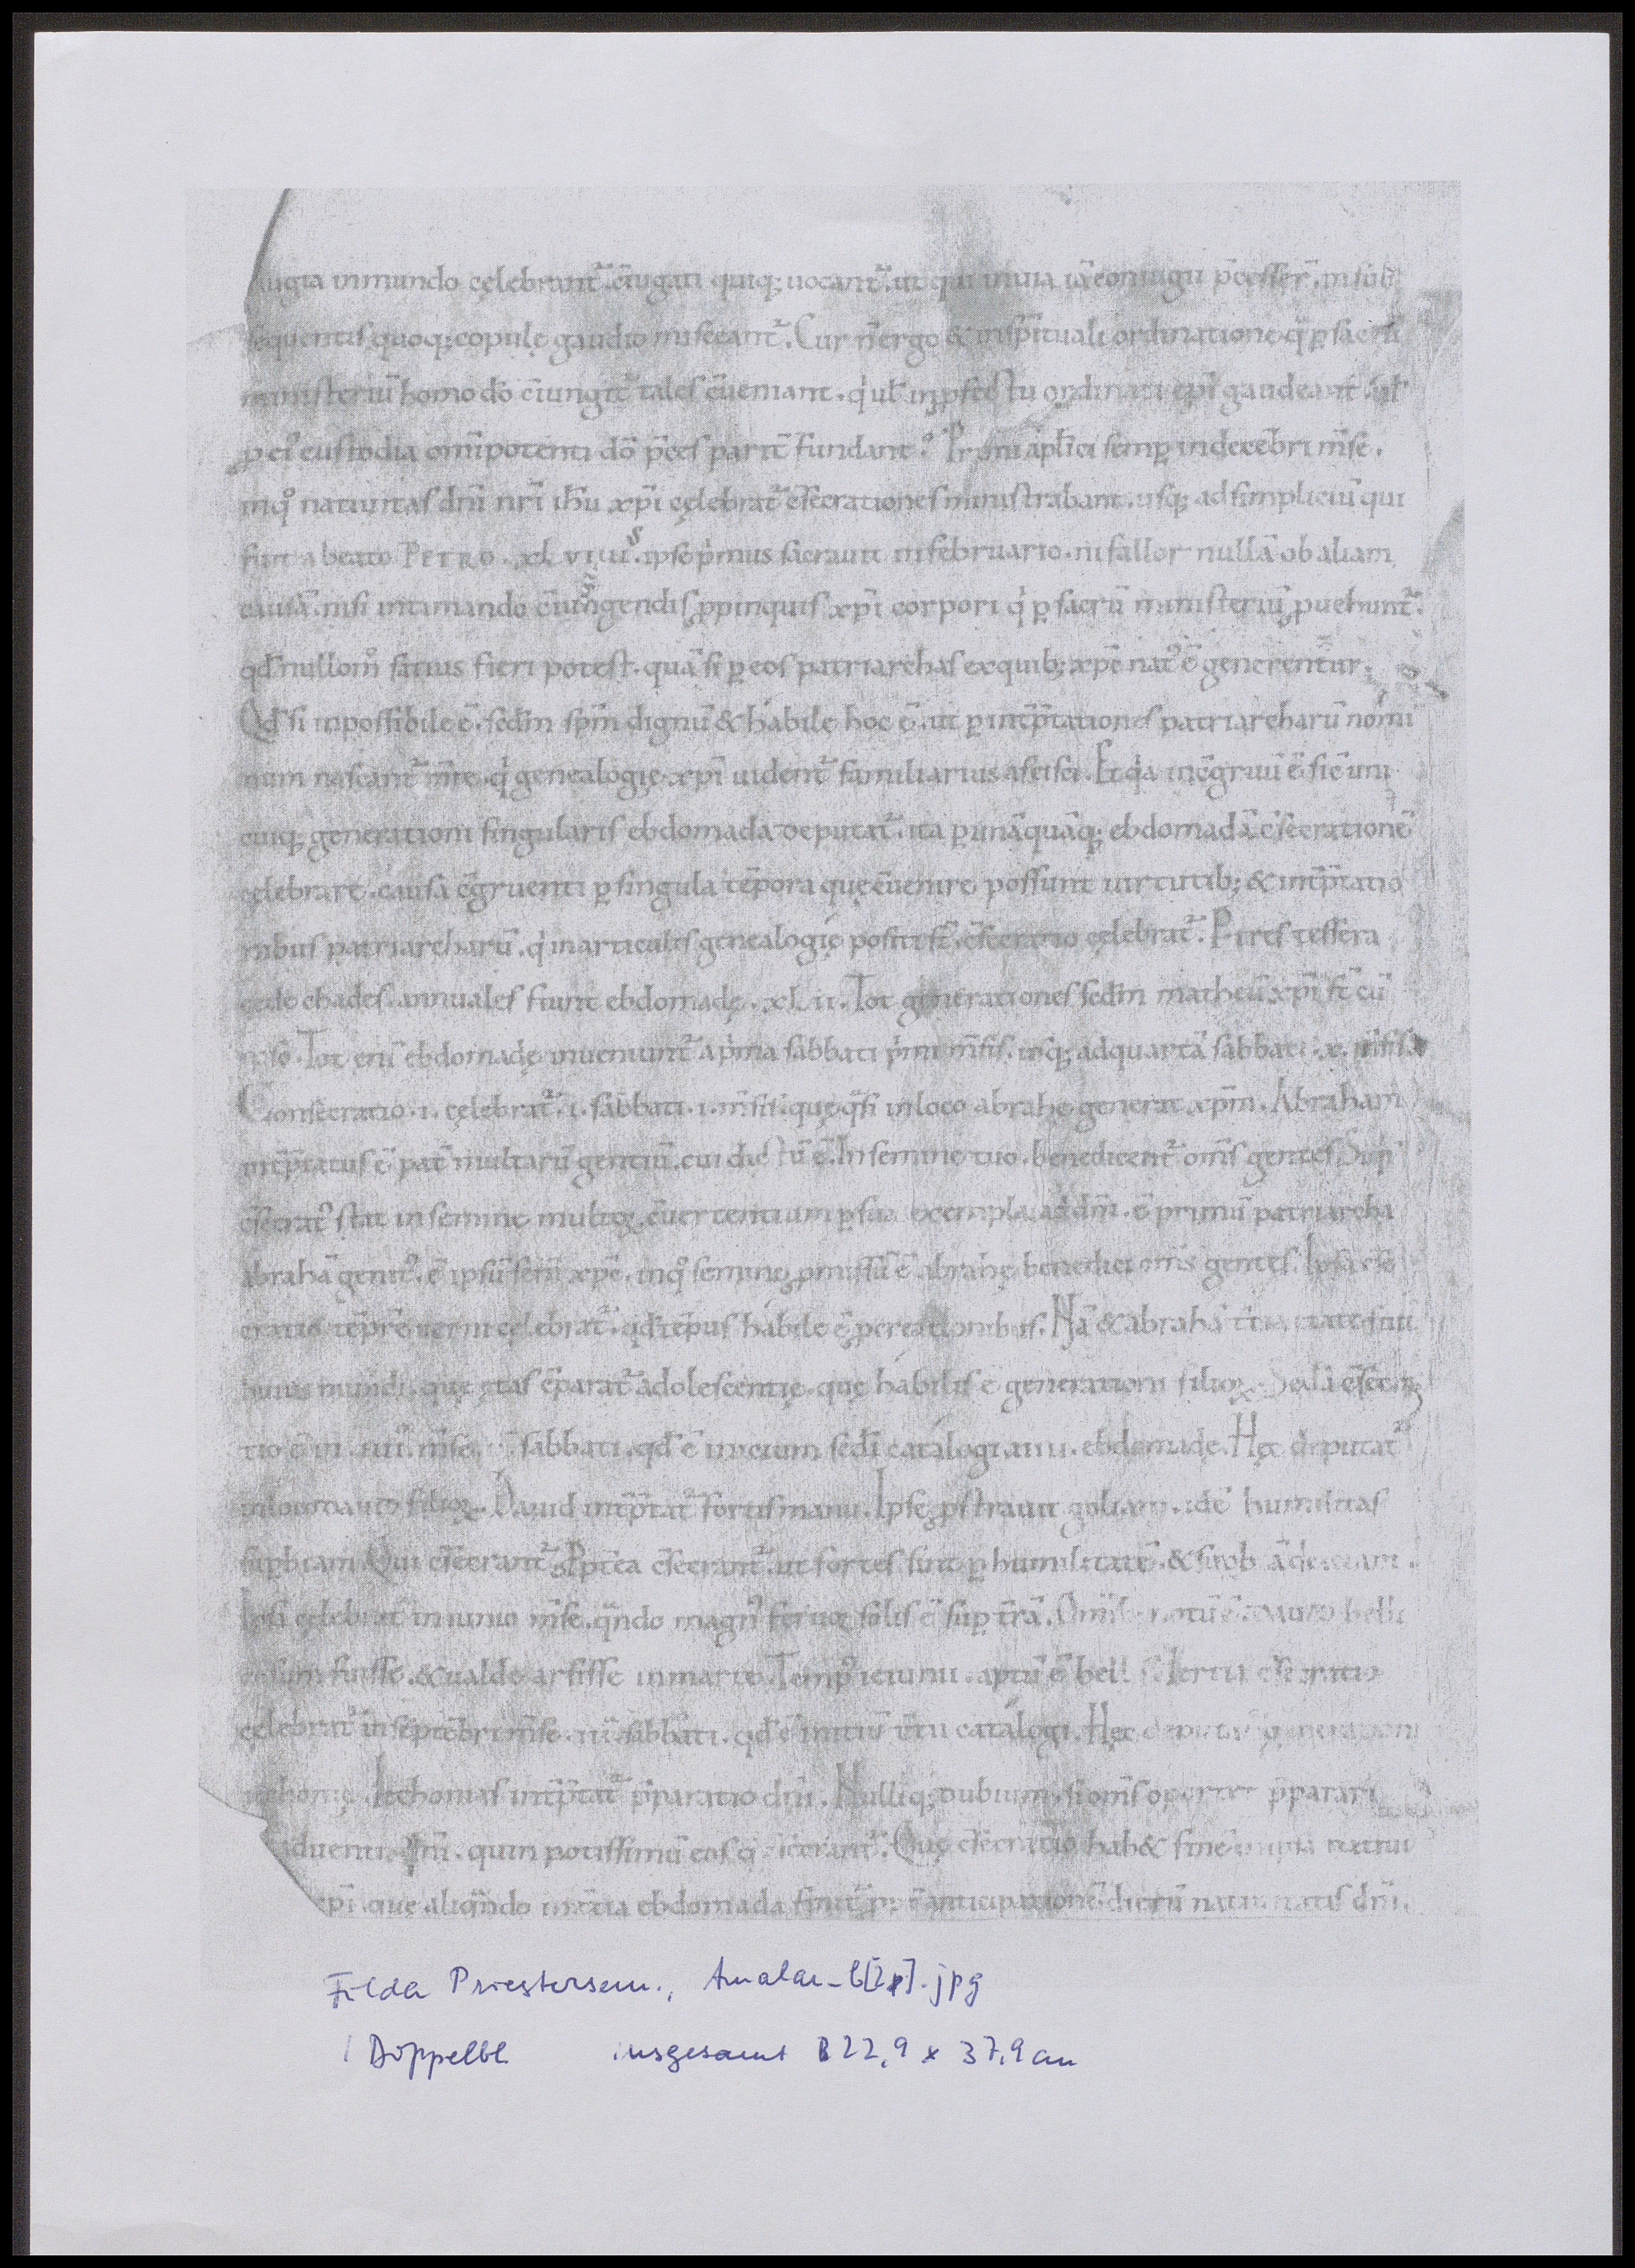 iugia inmundo cęlebrant᷑. c̄iugati quiq; uocant᷑. ut qui inuia iā coniugii p̄cesser̄. in sub
sequentis quoq; copulę gaudio misceant᷑. Cur n̄ ergo & insp̄ituali ordinatione q̄ ꝑ sacrū
ministeriū homo dō c̄iungit᷑ tales c̄ueniant. q̇ ul̄ in ordinati ep̄i gaudeant. ul̄
ꝑ ei᷒ custodia om̄ipotenti dō p̄ces parit̄ fundant? Primi ap̄lici semꝑ indecēbri m̄se.
inq᷒ natiuitas dn̄i nr̄i ih̄u xp̄i cęlebrat᷑ c̄secrationes ministrabant. usq; ad simpliciū qui
fuit a beato PETRO. xl viiii᷒. ipse p̍mus sacrauit infebruario. ni fallor nullā ob aliam
causā. nisi intimando c̄iungendis ꝓpinquis xp̄i corpori q̇ ꝑ sacrū ministeriū ꝓuehunt᷑.
qd̄ nullom̊ satius fieri potest. quā si ꝑ eos patriarchas exquib; xp̄c nat᷒ ē generentur.
Qd̄ si inpossibile ē. sed̄m sp̄m dignū & habile hoc ē. ut ꝑ int̄p̄tationes patriarcharū nomi
num nascant᷑ m̄te. q̇ genealogię xp̄i uident᷑ familiarius ascisci. Et q̇a inc̄gruū ē sic uni
cuiq; generationi singularis ebdomada deputat᷑. ita ꝑ unāquāq; ebdomadā c̄secrationē
cęlebrare. causa c̄gruenti ꝑ singula tēpora quę c̄uenire possunt uirtutib; & int̄p̄tatio
nibus patriarcharū. q̇ in articulis genealogię positi st̄. c̄secratio cęlebrat᷑. P tres tessera
cede chades. annuales fiunt ebdomadę. xl. ii. Tot generationes sed̄m matheū xp̄i st̄ cū
ipso. Tot enī ebdomadę inueniunt᷑ a p̍ma sabbati p̍mi m̄sis. usq; adquartā sabbati. x. m̄sis.
Consecratio. i. cęlebrat᷑. i. sabbati. i. m̄sis. quę q̄si inloco abrahę generat xp̄m. Abraham
int̄p̄tatus ē pat̄ multarū gentiū. cui dictū ē. In semine tuo. benedicent᷑ om̄s gentes.
c̄secrat᷒ stat in semine multoꝝ. c̄uertentium ꝑ sua exempla ad dn̄m. ē primū patriarcha
abrahā genit᷒. ē ipsū sem̄ xp̄c. inq᷒ semine ꝓmissū ē abrahę benedici om̄s gentes. Ipsa c̄se
cratio tēpr̄e uerni cęlebrat᷑. qd̄ tēpus habile ē ꝓcreationibus. Nā & abrahā fuit
huius mundi. quę ętas c̄parat᷑ adolescentię. quę habilis ē generationi filioꝝ. c̄secra
tio ē in. iiii᷒. m̄se. sabbati. qd̄ ē inicium sed̄i catalogi. xiiii. ebdomadę. Hęc deputat᷑
filioꝝ. Dauid int̄p̄tat᷑ fortis manu. Ipse ꝓstrauit goliam. idē humilitas
suꝑbiam. Qui c̄secrant᷑. Ꝓpt̄ea c̄secrant᷑. ut fortes sint ꝑ humilitatē. &
cęlebrat᷑ iniunio m̄se. q̄ndo magn᷒ feruor solis ē suꝑ t̄rā. notū ē belli
cosum fuisse. & ualde arsisse inmarte. Temp᷒ ieiunii. aptū ē Tertia c̄secratio
cęlebrat᷑ in septēbri m̄se. iiii. sabbati. qd̄ ē initiū t̄tii catalogi. Hęc deputat᷑ generationi
iechonię. Iechonias int̄p̄tat᷑ p̄paratio dn̄i. Nulliq; dubium. si om̄s oportet p̄parari
aduentui dn̄i. quin potissimū eos q̇ c̄secrant᷑. Quę c̄secratio hab& finē
xp̄i. quę aliq̄ndo int̄cia ebdomada finit᷑ anticipationē dierū natiuitatis dn̄i.
Fulda Priestersem., Amalar-6[2r].jpg
1 Doppelbl. insgesamt 22,9 x 37,9 cm